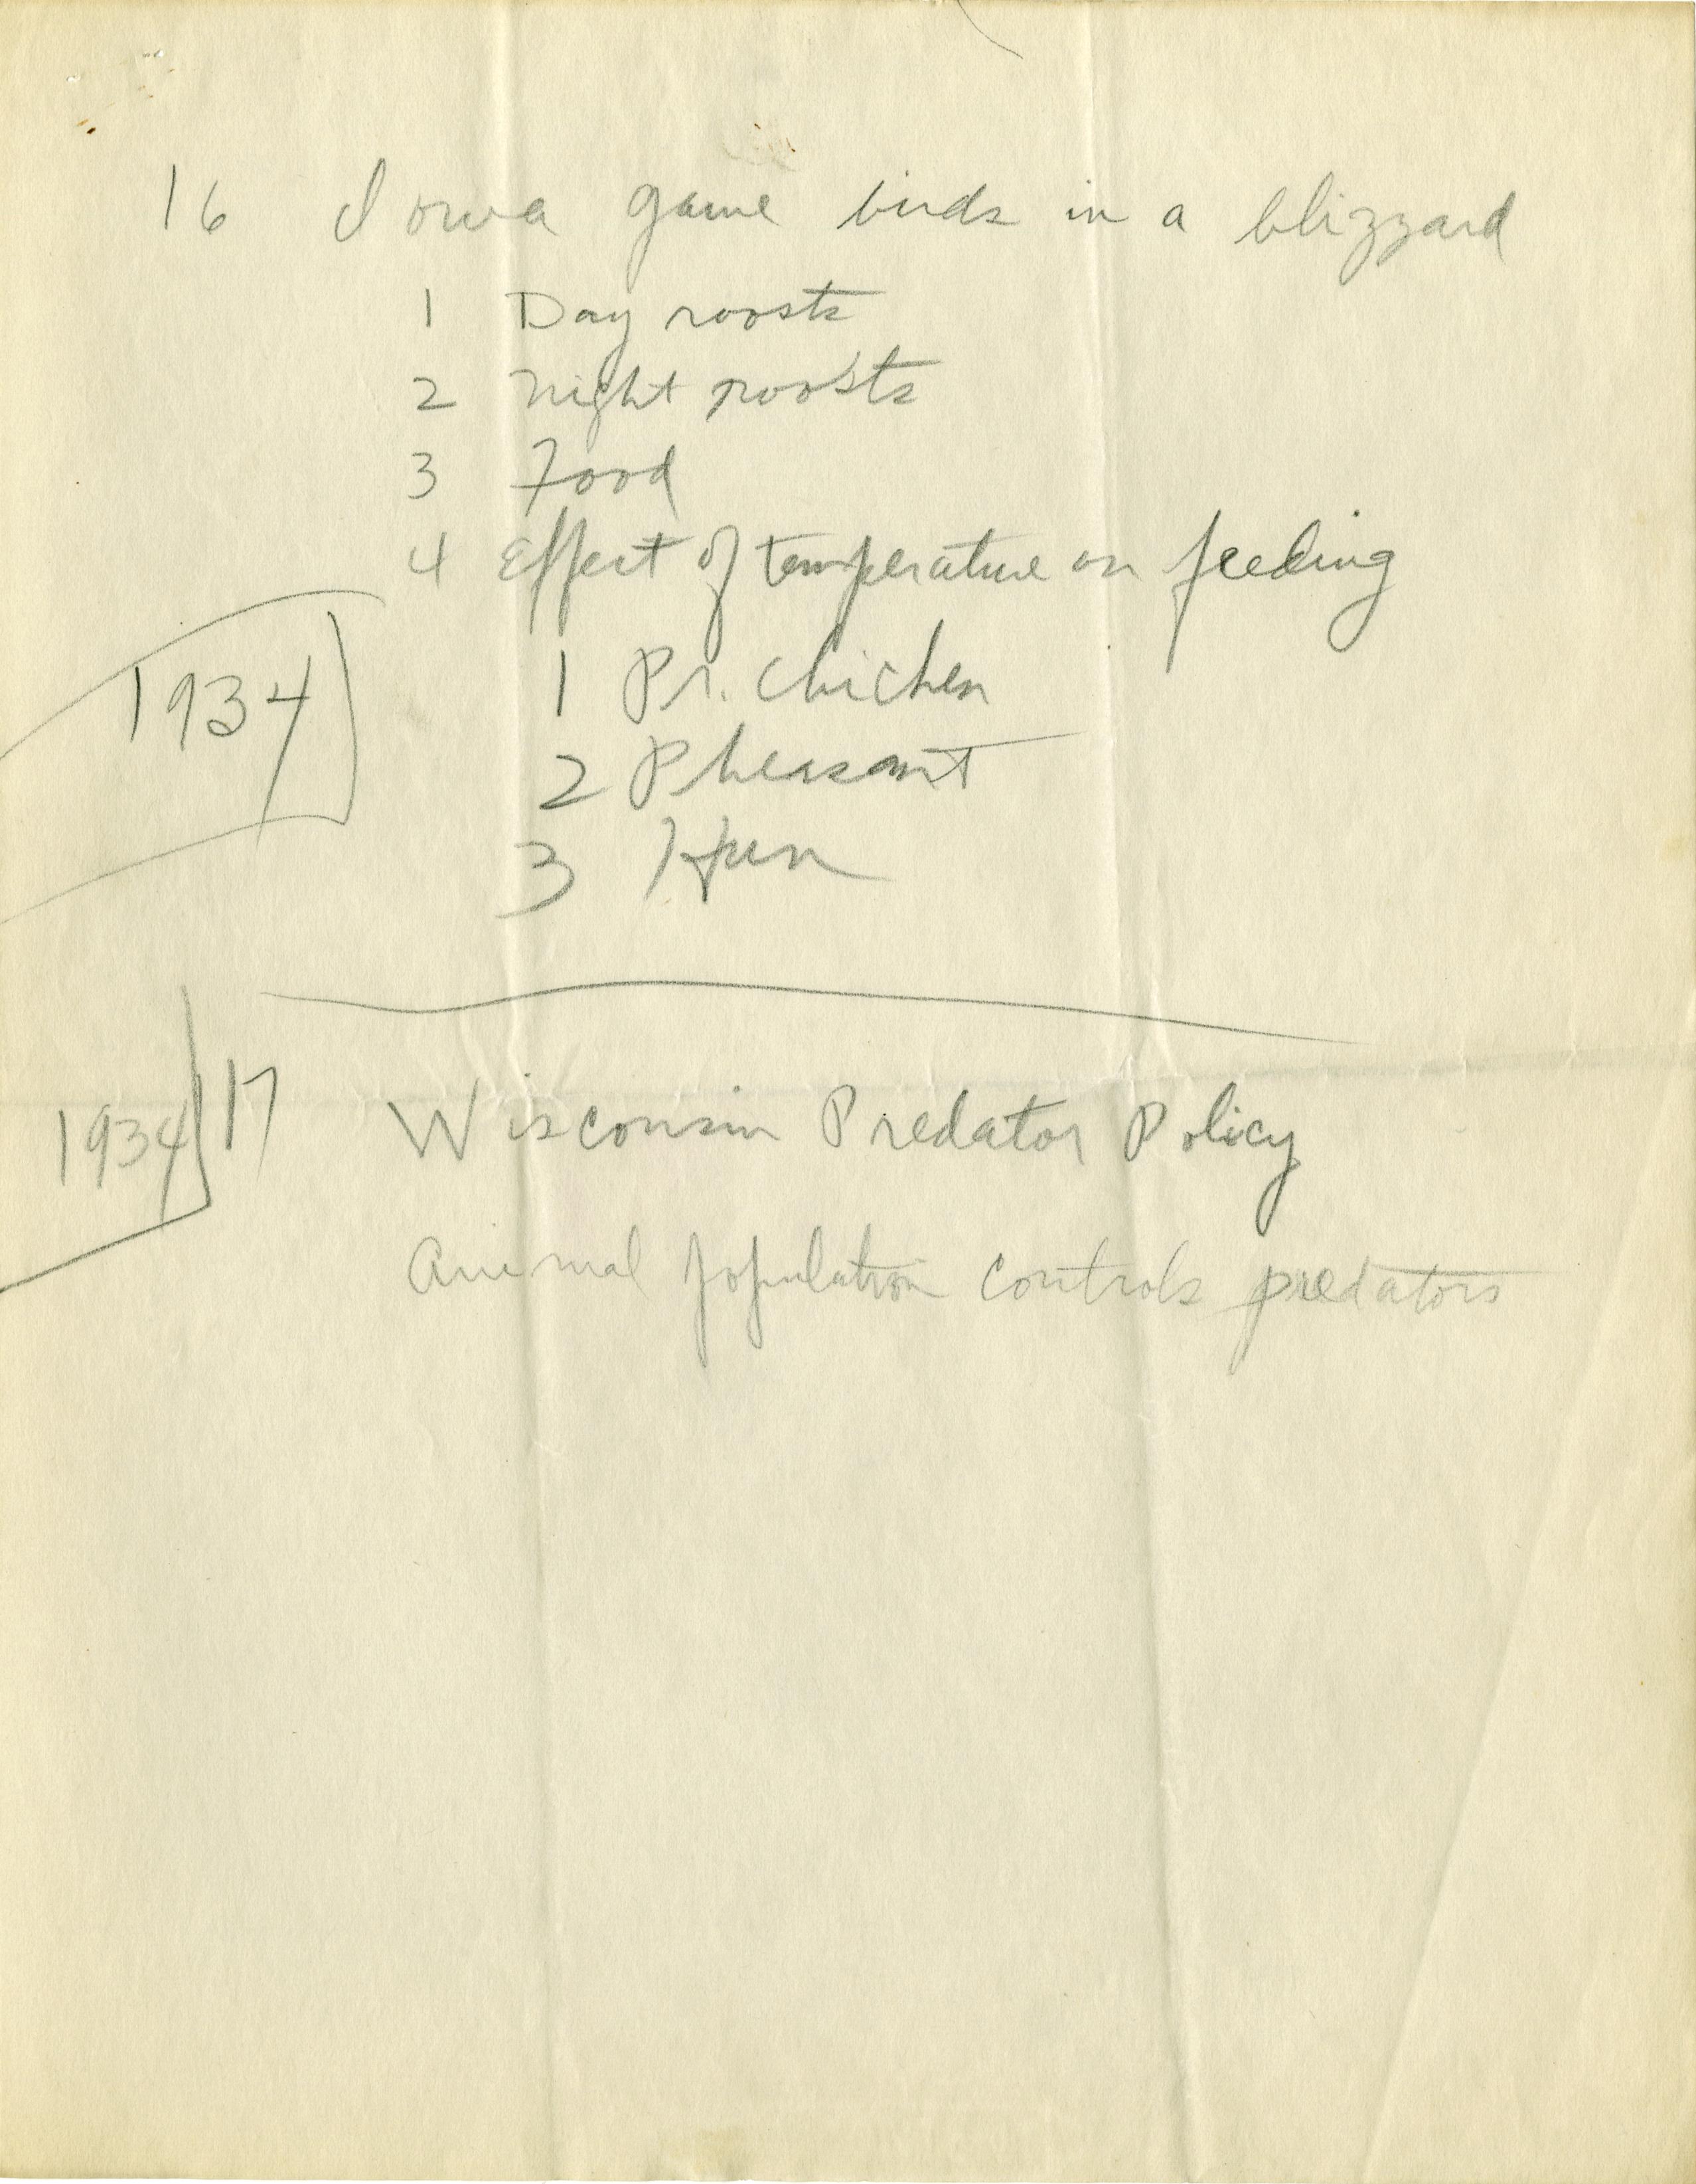 16 Iowa game birds in a blizzard
1 Day roosts
2 Night roosts
3 Food
4 Effect of temperature on feeding
1934
1 Pr. Chicken
2 Pheasant
3 Hun
1934 17 Wisconsin Predator Policy
Animal population controls predators